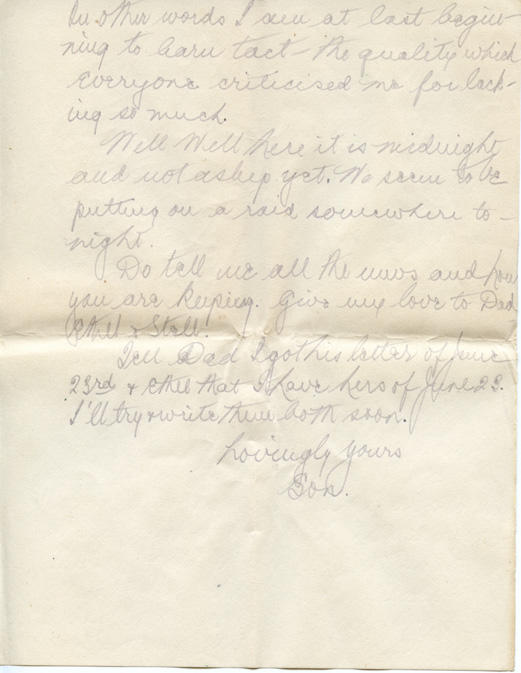 In other words I am at last begin-
ning to learn tact - the quality which
everyone criticised me for lack-
ing so much.
Well Well here it is midnight
and not asleep yet. We seem to be
putting on a raid somewhere to-
night.
Do tell me all the news and how
you are keeping. Give my love to Dad
Ethel & Stell.
Tell Dad I got his letter of June
23rd & Ethel that I have hers of June 23.
I'll try & write them both soon.
Lovingly yours
Son.